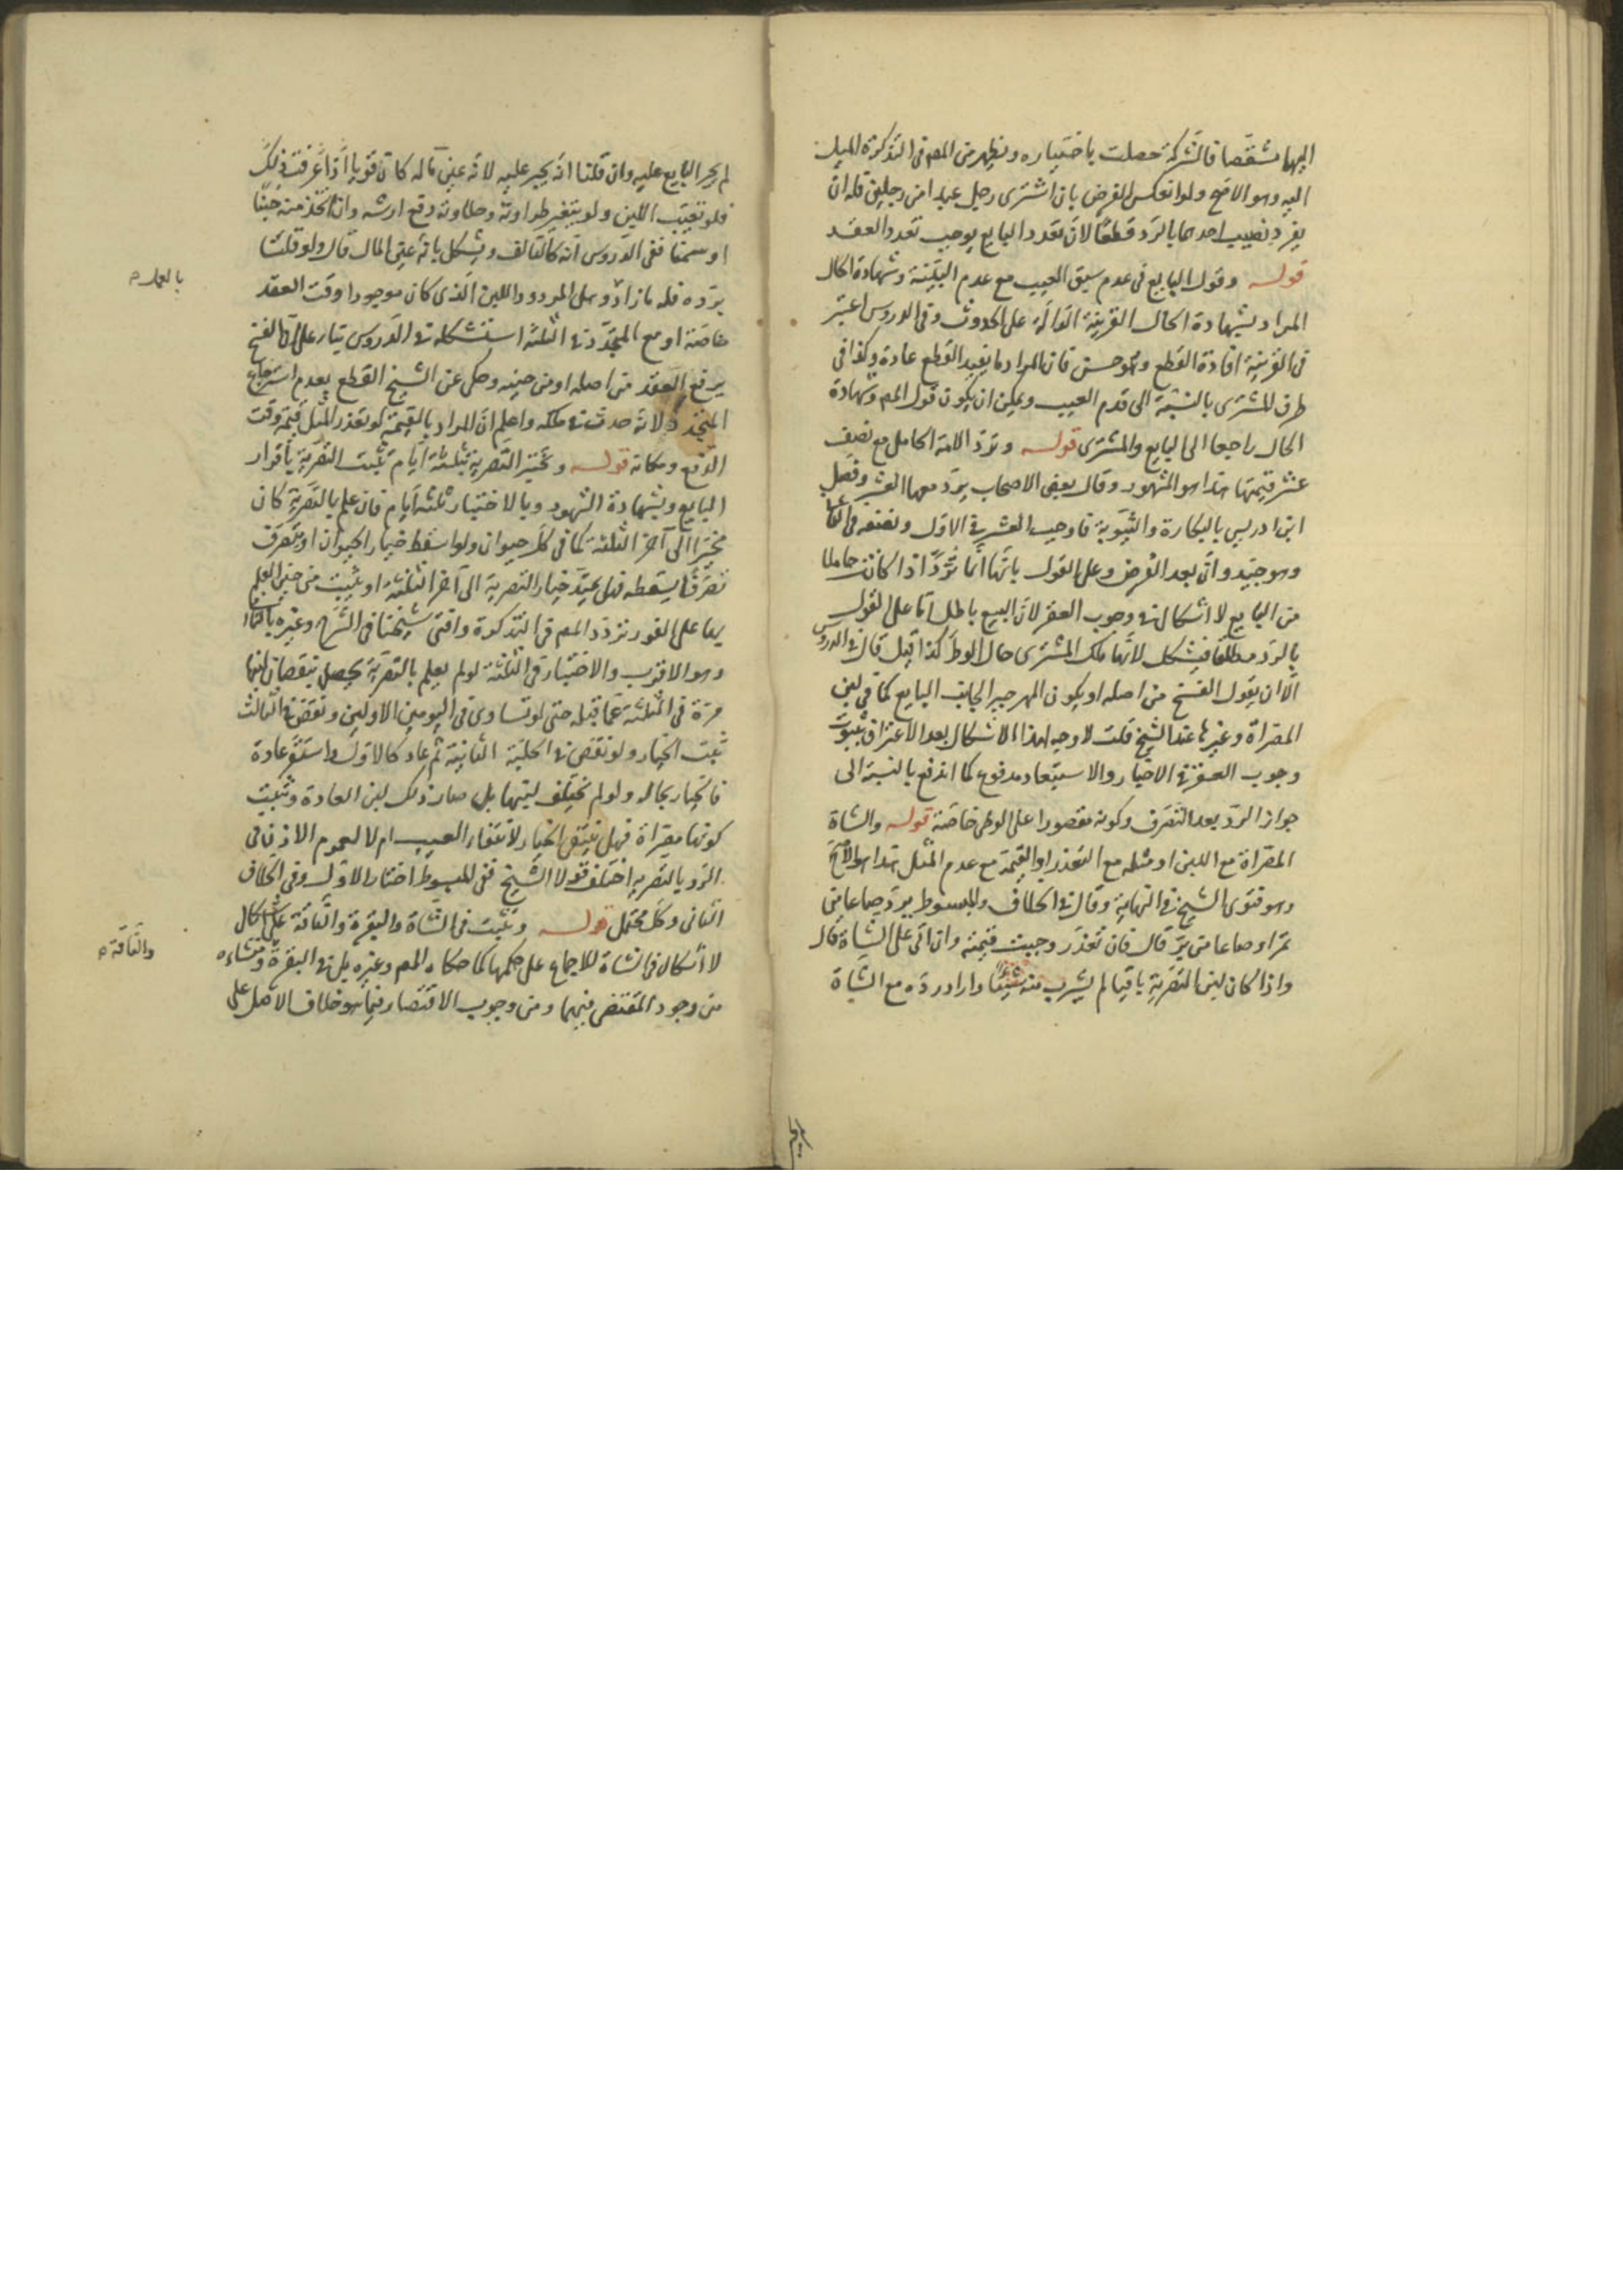 اليهما شقصا فالشركة حصلت باختياره ويظهر من المص في التذكرة الميل
اليه وهو الاصح ولو انعكس الفرض بان اشترى رجل عبدا من رجلين فله ان
يفرد نصيب احدهما بالرد قطعا لان تعدد البايع يوجب تعدد العقد
قوله وقول البايع في عدم سبق العيب مع عدم البينة وشهادة الحال
المراد بشهادة الحال القرينة الدالة على الحدوث وفي الدروس اعتبر
في القرينة افادة القطع وهو حسن فان المراد ما يفيد القطع عادة وكذا في
طرف المشترى بالنسبة الى قدم العيب ويمكن ان يكون قول المص وشهادة
الحال راجعا الى البايع والمشترى قوله وترد الامة الحامل مع نصف
عشر قيمتها هذا هو المشهور وقال بعض الاصحاب يرد معها العشر وفصل
ابن ادريس بالبكارة والثيوبة فاوجب العشر في الاول ونصفه في الثاني
وهو جيد وان بعد الفرض وعلى القول بانها انما ترد اذا كانت حاملا
من البايع لا اشكال في وجوب العقر لان البيع باطل اما على القول
بالرد مطلقا فيشكل لانها ملك المشترى حال الوطئ كذا قيل قال في الدروس
الا ان يقول الفسخ من اصله او يكون المهر جبرا لجانب البايع كما في لبن
المصراة وغيرها عند الشيخ قلت لا وجه لهذا الاشكال بعد الاعتراف بثبوت
وجوب العقر في الاخبار والاستبعاد مدفوع كما اندفع بالنسبة الى
جواز الرد بعد التصرف وكونه مقصورا على الوطئ خاصة قوله والشاة
المصراة مع اللبن او مثله مع التعذر او القيمة مع عدم المثل هذا هو الاصح
وهو فتوى الشيخ في النهاية وقال في الخلاف والمبسوط يرد صاعا من
تمر او صاعا من بر قال فان تعذر وجبت قيمته وان اتى على الشاة قال
واذا كان لبن التصرية باقيا لم يشرب منه شيئا واراد رده مع الشاة
لم يجبر البايع عليه وان قلنا انه يجبر عليه لانه عين ماله كان قويا اذا عرفت ذلك
فلو تعيب اللبن ولو بتغير طراوته وحلاوته دفع ارشه وان اتخذ منه جبنا
او سمنا ففي الدروس انه كالتالف ويشكل بانه عين المال قال ولو قلنا
برده فله ما زاد وهل المردود اللبن الذي كان موجودا وقت العقد
خاصة او مع المتجدد في الثلثة استشكله في الدروس بناء على ان الفسخ
يرفع العقد من اصله او من حينه وحكى عن الشيخ القطع بعدم استرجاع
المتجدد لانه حدث في ملكه واعلم ان المراد بالقيمة لو تعذر المثل قيمة وقت
الدفع ومكانه قوله وتختبر التصرية بثلثة ايام تثبت التصرية باقرار
البايع وبشهادة الشهود وبالاختبار ثلثة ايام فان علم بالتصرية كان
مخيرا الى آخر الثلثة كما في كل حيوان ولو اسقط خيار الحيوان او تصرف
تصرفا يسقطه فهل يمتد خيار التصرية الى آخر الثلثة او يثبت من حين العلم
بها على الفور تردد المص في التذكرة وافتى شيخنا في الشرح وغيره بالثاني
وهو الاقرب والاختبار في الثلثة لو لم يعلم بالتصرية يحصل بنقصان لبنها
مرة في الثلثة عما قبله حتى لو تساوى في اليومين الاولين ونقص في الثالث
ثبت الخيار ولو نقص في الحلبة الثانية ثم عاد كالاول واستقر عادة
فالخيار بحاله ولو لم يختلف لبنها بل صار ذلك لبن العادة وثبت
كونها مصراة فهل ينتفى الخيار لانتفاء العيب ام لا لعموم الاذن في
الرد بالتصرية اختلف قولا الشيخ ففي المبسوط اختار الاول وفي الخلاف
الثاني وكل محتمل قوله وتثبت في الشاة والبقرة والناقة على اشكال
لا اشكال في الشاة للاجماع على حكمها كما حكاه المص وغيره بل في البقرة ومنشاءه
من وجود المقتضى فيهما ومن وجوب الاقتصار فيما هو خلاف الاصل على
والناقة م